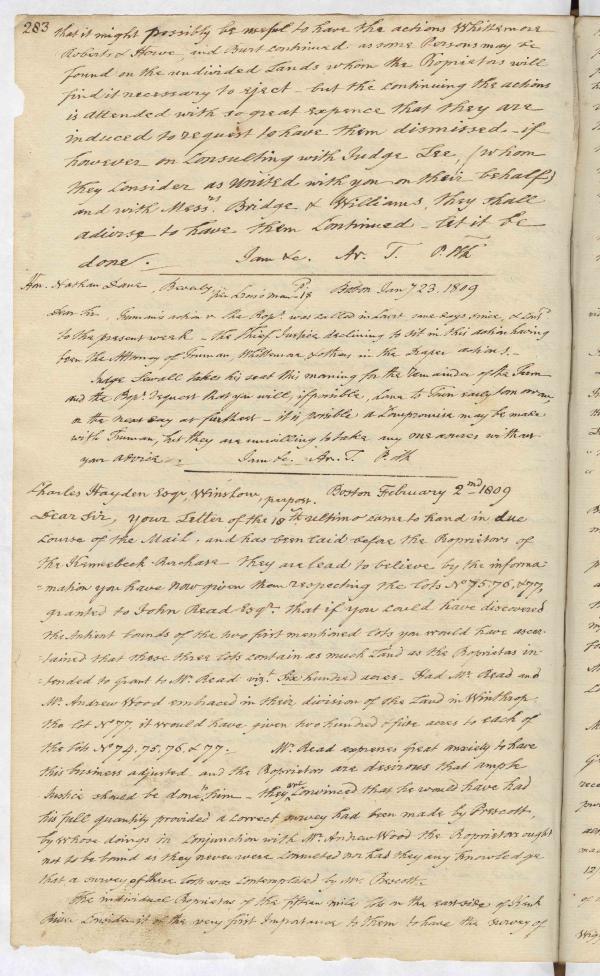 283
that it might possibly be useful to have the actions Whittemore
Roberts & Howe and Burt continued as some Persons may be
found on the undivided Lands whom the Proprietors will
find it necessary to eject - but the continuing the actions
is attended with so great expence that they are
induced to request to have them dismissed - if
however on Consulting with Judge Lee, (whom
they consider as United with you on their behalf)
and with Messrs. Bridge & Williams, they shall
advise to have them Continued - let it be
done. I am &c. Ar. T. P. Ptk
Hon. Nathan Dane, Beverly, Boston Jany 23. 1809
Dear Sir, Truman's action v the Props. was called in Court some days since, &
to the present week - the Chief Justice declining to sit in this action having
been the Attorney of Truman, Whittemore & others in the Draper actions. -
Judge Sewall takes his seat this morning for the remainder of the Term
and the Props. request that you will, if possible, come to Town early tomorrow
or the next day at furthest - it is possible a Compromise may be made
with Truman, but they are unwilling to take any one arises without
your advice. I am &c. Ar. T. P. Ptk
Charles Hayden Esqr. Winslow, pr post. Boston February 2nd 1809
Dear Sir, your Letter of the 18th ultimo came to hand in due
course of the Mail, and has been laid before the Proprietors of
the Kennebeck Purchase they are lead to believe by the infor-
-mation you have now given them respecting the lots No 75, 76, & 77,
granted to John Read Esqr. that if you could have discovered
the Antient bounds of the two first mentioned lots you would have ascer-
-tained that these three lots contain as much Land as the Proprietors in-
-tended to grant to Mr. Read vizt. Six hundred acres - Had Mr. Read and
Mr. Andrew Wood embraced in their division of the Land in Winthrop
the lot No 77, it would have given two hundred & five acres to each of
the lots No 74, 75, 76, & 77. Mr. Read expresses great anxiety to have
this business adjusted and the Proprietors are desirous that ample
Justice should be done to him - they are convinced that he would have had
his full quantity provided a correct survey had been made by Prescott,
by whose doings in Conjunction with Mr. Andrew Wood the Proprietors ought
not to be bound as they never were consulted nor had they any knowledge
that a survey of these lots was contemplated by Mr. Prescott.
The individual Proprietors of the fifteen mile lots on the east side of Kenk
River consider it of the very first Importance to them to have the survey of